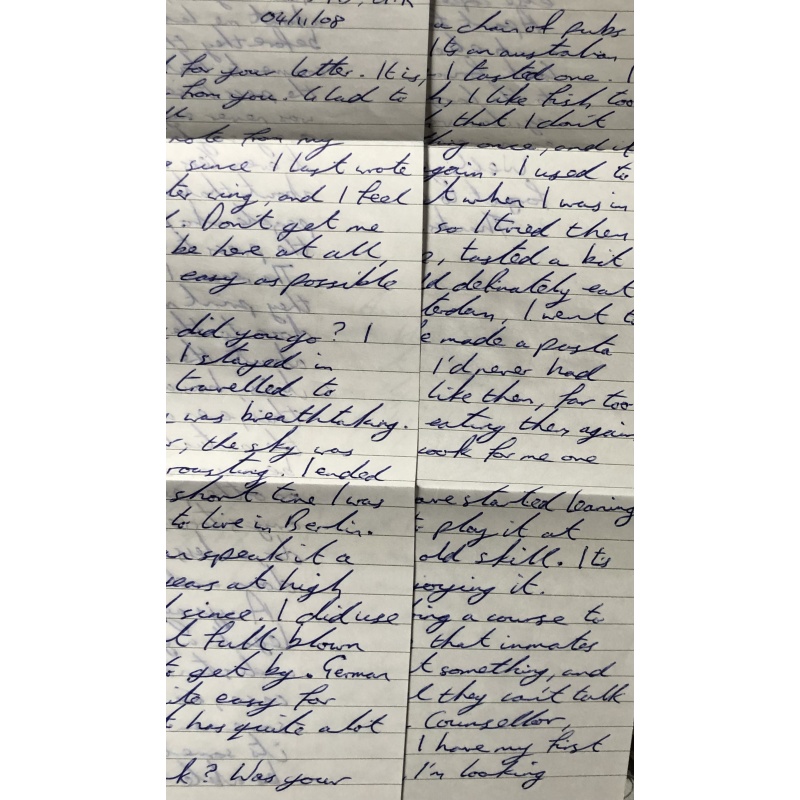 04/11/08
for your letter. It is,
from you. Glad to
note from my
since I last wrote
ter wing, and I feel
. Don't get me
be here at all,
easy as possible
did you go? I
I stayed in
travelled to
was breathtaking.
r, the sky was
roasting. I ended
short time I was
to live in Berlin.
speak it a
ears at high
since. I did use
t full blown
to get by. German
ite easy for
t has quite a lot
k? Was your
a chain of pubs
Its an australian
I tasted one. I
h, I like fish too
that I don't
ing once, and it
again. I used to
it when I was in
so I tried them
, tasted a bit
ld definately eat
terdam, I went to
e made a pasta
I'd never had
like them, far too
eating them again
cook for me one
ave started learning
play it at
old skill. Its
joying it.
ing a course to
that inmates
t something, and
l they can't talk
Counsellor,
I have my first
I'm looking